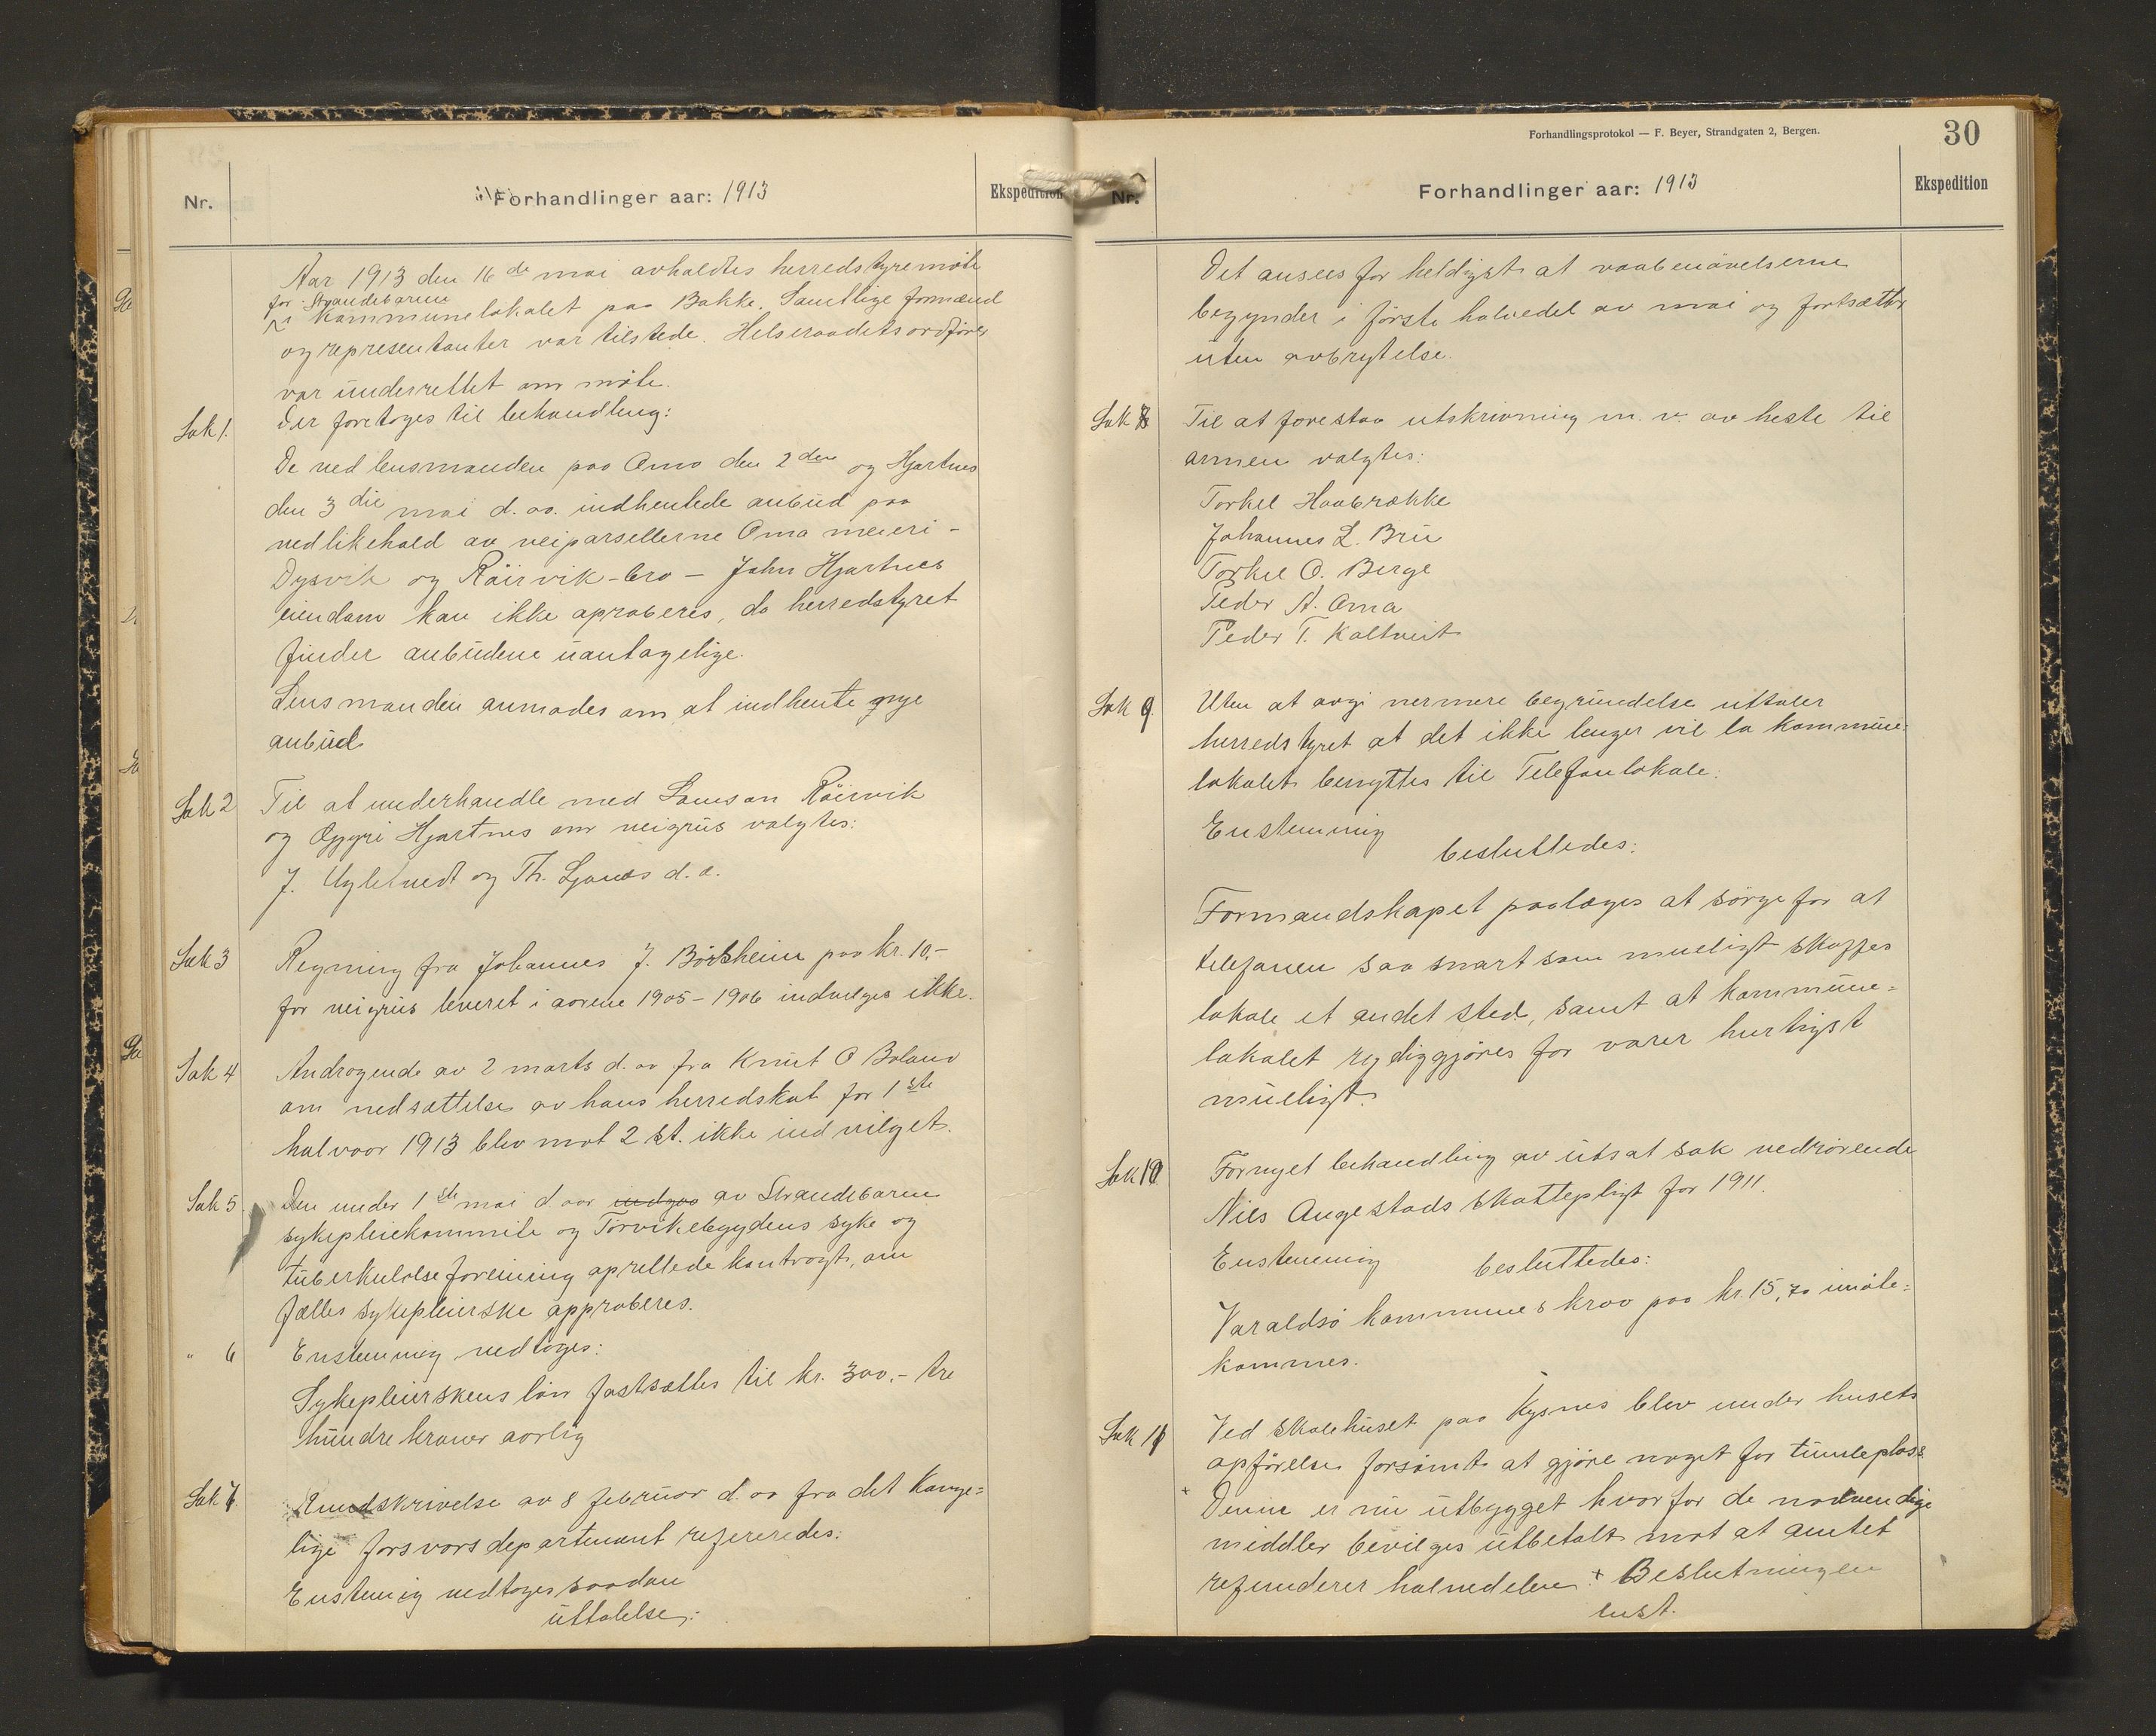 Nr.
Forhandlinger aar: 1913
Ekspedition
Aar 1913 den 16de mai avholdtes herredstyremöte
for Strandebarm
i kommunelokalet paa Bakke. Samtlige formænd
og representanter var tilstede. Helseraadets ordförer
var underrettet om möte.
Der foretoges til behandling:
Sak 1.
De ved lensmanden paa Oma den 2den og Hjartnes
den 3die mai d. aa. indhentede anbud paa
vedlikehold av veiparsellerne Oma meieri-
Dysvik og Röirvik-bro - John Hjartnes
eiendom kan ikke aproberes, da herredstyret
finder anbudene uantagelige.
Lensmanden anmodes om at indhente nye
anbud
Sak 2
Til at underhandle med Samson Röirvik
og Oggri Hjartnes om veigrus valgtes:
J. Ugletvedt og Th. Ljones d. e.
Sak 3
Regning fra Johannes J. Börsheim paa kr. 10,-
for veigrus leveret i aarene 1905-1906 indvilges ikke.
Sak 4
Andragende av 2 marts d. aa fra Knut O Boland
om nedsættelse av hans herredskat for 1ste
halvaar 1913 blev mot 2 st. ikke indvilget.
Sak 5
Den under 1ste mai d aar indgaa av Strandebarm
sykepleiekommite og Torvikebygdens syke og
tuberkulose forening oprettede kontragt, om
fælles sykepleierske approberes.
" 6
Enstemmig vedtoges:
Sykepleierskens lön fastsættes til kr. 300.- tre
hundre kroner aarlig
Sak 7.
Rundskrivelse av 8 februar d. aa fra det Konge=
lige forsvarsdepartement refereredes.
Enstemig vedtoges saadan
uttalelse:
Forhandlingsprotokol — F. Beyer, Strandgaten 2, Bergen.
30
Nr.
Forhandlinger aar: 1913
Ekspedition
Det ansees for heldigst at vaabenövelserne
begynder i förste halvedel av mai og fortsætter
uten avbrytelse.
Sak 8
Til at forestaa utskrivning m. v. av heste til
armen valgtes:
Torkel Haabrække
Johannes L. Bru
Torkel O. Berge
Peder A. Oma
Peder T. Kaltveit
Sak 9.
Uten at avgi nermere begrundelse uttaler
herredstyret at det ikke lenger vil la kommune=
lokalet benyttes til Telefonlokale.
Enstemmig
besluttedes:
Formandskapet paalæges at sörge for at
telefonen saa snart som mueligt skaffes
lokale et andet sted, samt at kommune=
lokalet rydiggjöres for varer hurtigst
mueligt.
Sak 10
Fornyet behandling av utsat sak vedrörende
Nils Augestads skattepligt for 1911.
Enstemmig
besluttedes:
Varaldsö kommunes krav paa kr. 15,70 imöte=
kommes.
Sak 11
Ved skolehuset paa Kysnes blev under husets
opförelse forsömt at gjöre noget for tumleplass
+ Denne er nu utbygget hvorfor de nødvendige
middler bevilges utbetalt mot at amtet
refunderer halvedelen. + Beslutningen
enst.